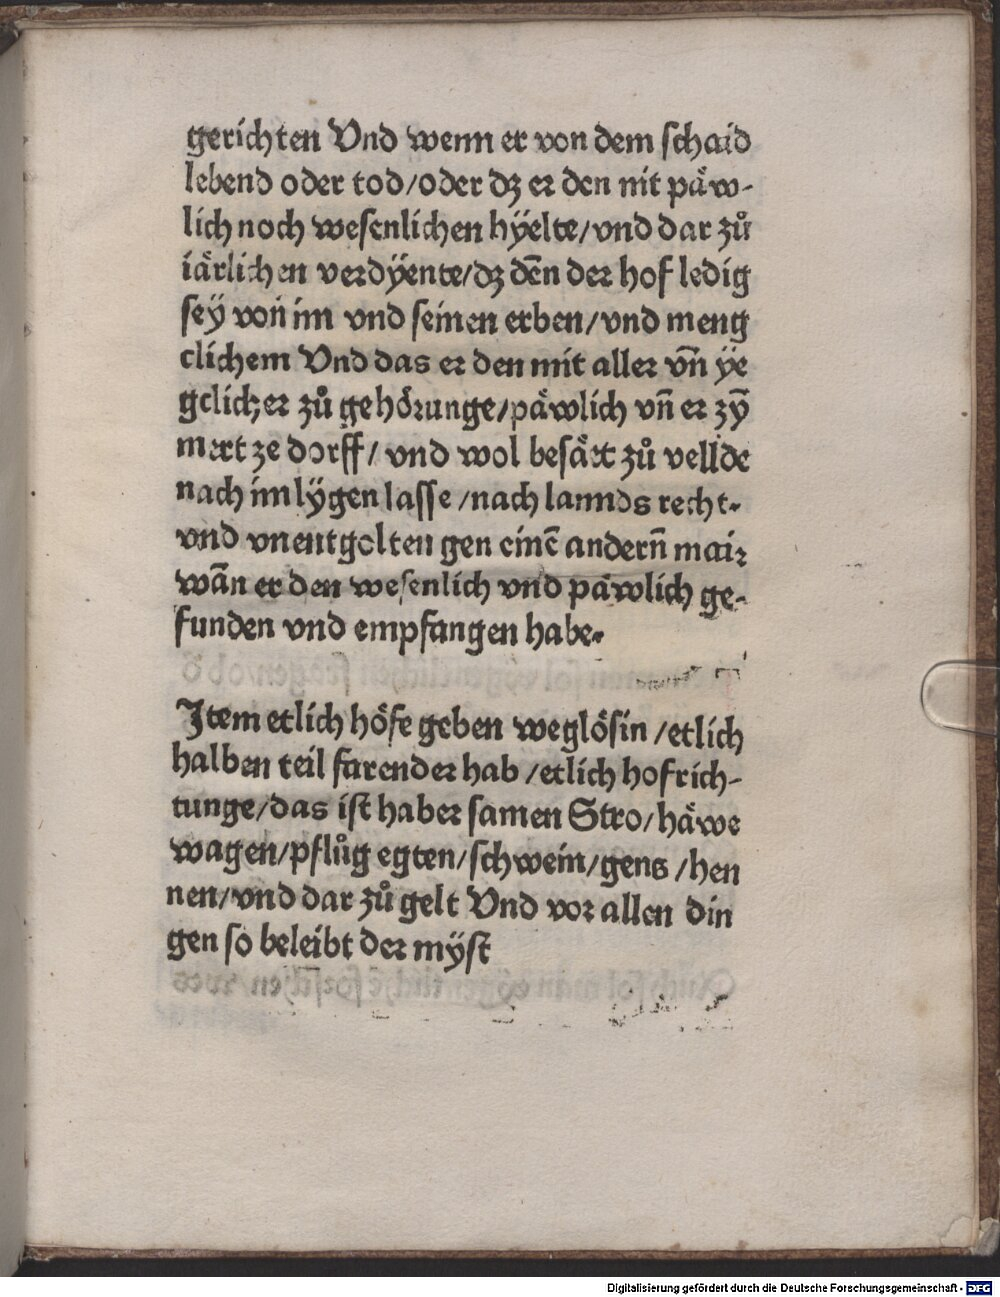 gerichten Vnd wenn er von dem schaid
lebend oder tod/oder dz er den nit päw-
lich noch wesenlichen hÿelte/vnd dar zů
iärlichen verdÿente/dz dēn der hof ledig
seÿ von im vnd seinen erben/vnd meng
clichem Vnd das er den mit aller vn̄ ÿe
gclicher zů gehörunge/päwlich vn̄ er zȳ
mert ze dorff/ vnd wol besäet zů vellde
nach im lÿgen lasse /nach lannds recht-
vnd vnentgolten gen einē andern̄ mair
wān er den wesenlich vnd päwlich ge-
funden vnd empfangen habe-
Item etlich höfe geben weglösin /etlich
halben teil farender hab /etlich hofrich-
tunge/das ist haber samen Stro/häwe
wagen/pflůg egten/schwein/gens /hen
nen/vnd dar zů gelt Vnd vor allen din
gen so beleibt der mÿst
Digitalisierung gefördert durch die Deutsche Forschungsgemeinschaft - DFG